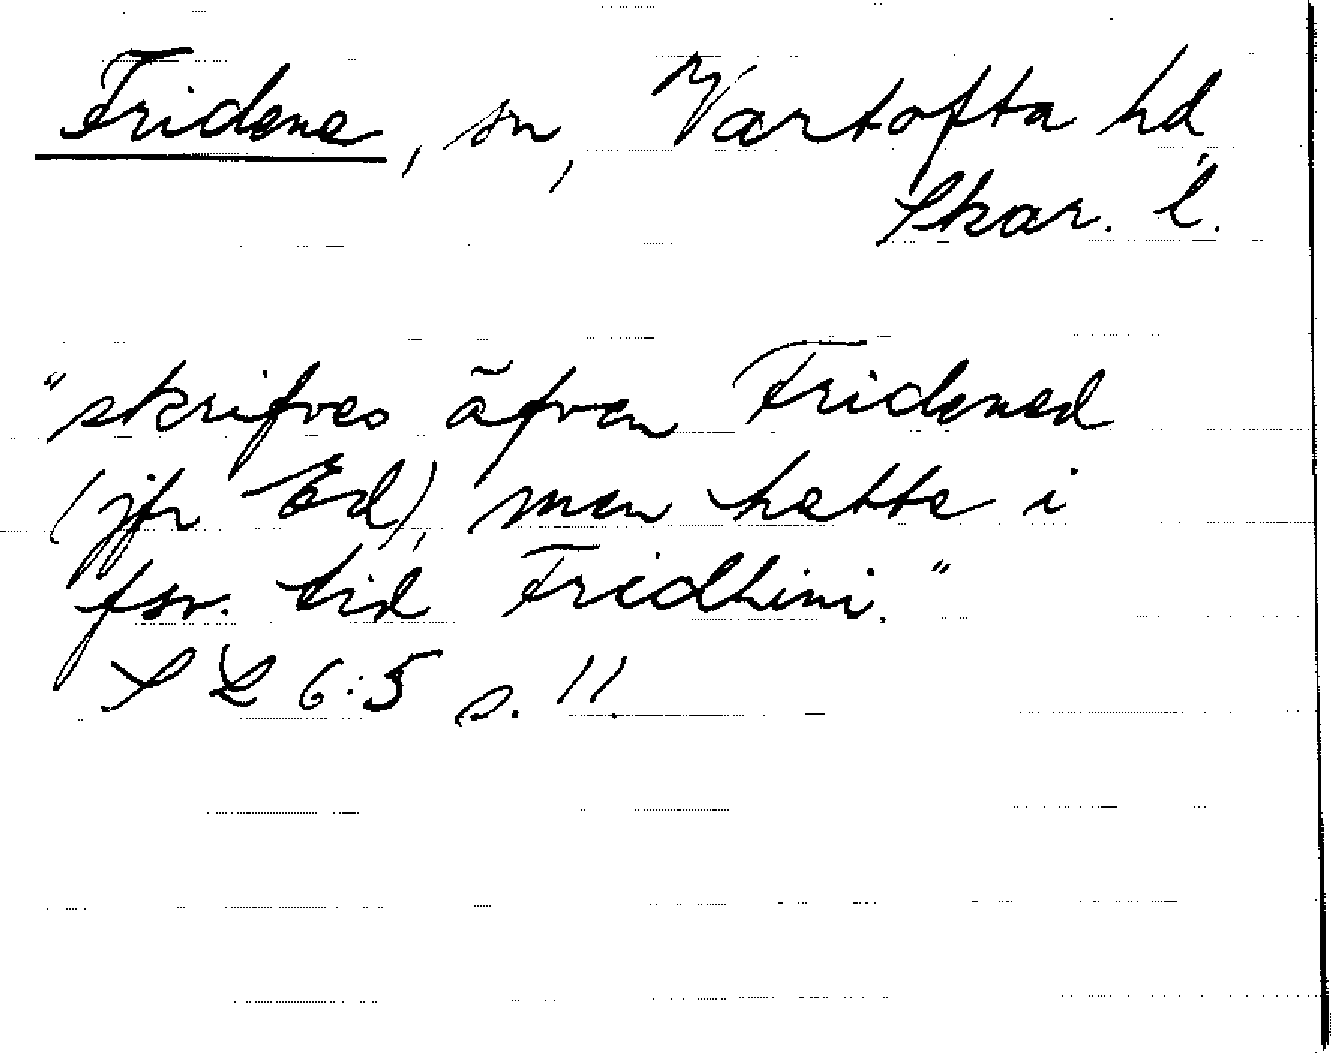 Fridene, sn, Vartofta hd,
Skar. l.
"skrifves äfven Fridened
(jfr Ed), men hette i
fsv. tid Fridhini."
SL 6:5 s. 11.